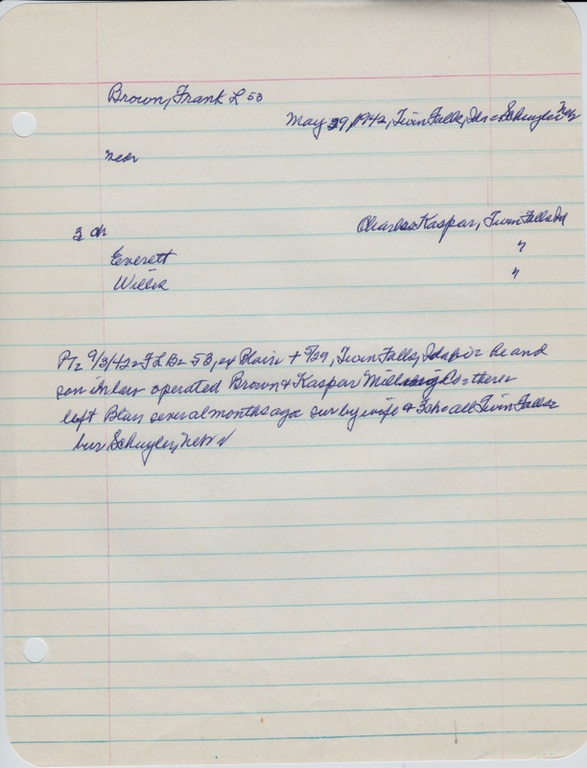 Brown, Frank L 58
May 29, 1942, Twin Falls, Ida - Schuyler Neb
Near
3 ch Charles Kaspar, Twin Falls Id
Everett "
Willis "
9/3/42 = F L B 58, ex Blair + 5/29, Twin Falls, Ida he and
son in law operated Brown & Kaspar Milling Co there
left Blair several months ago sur by wife & 3 ch all Twin Falls
bur Schuyler, Neb